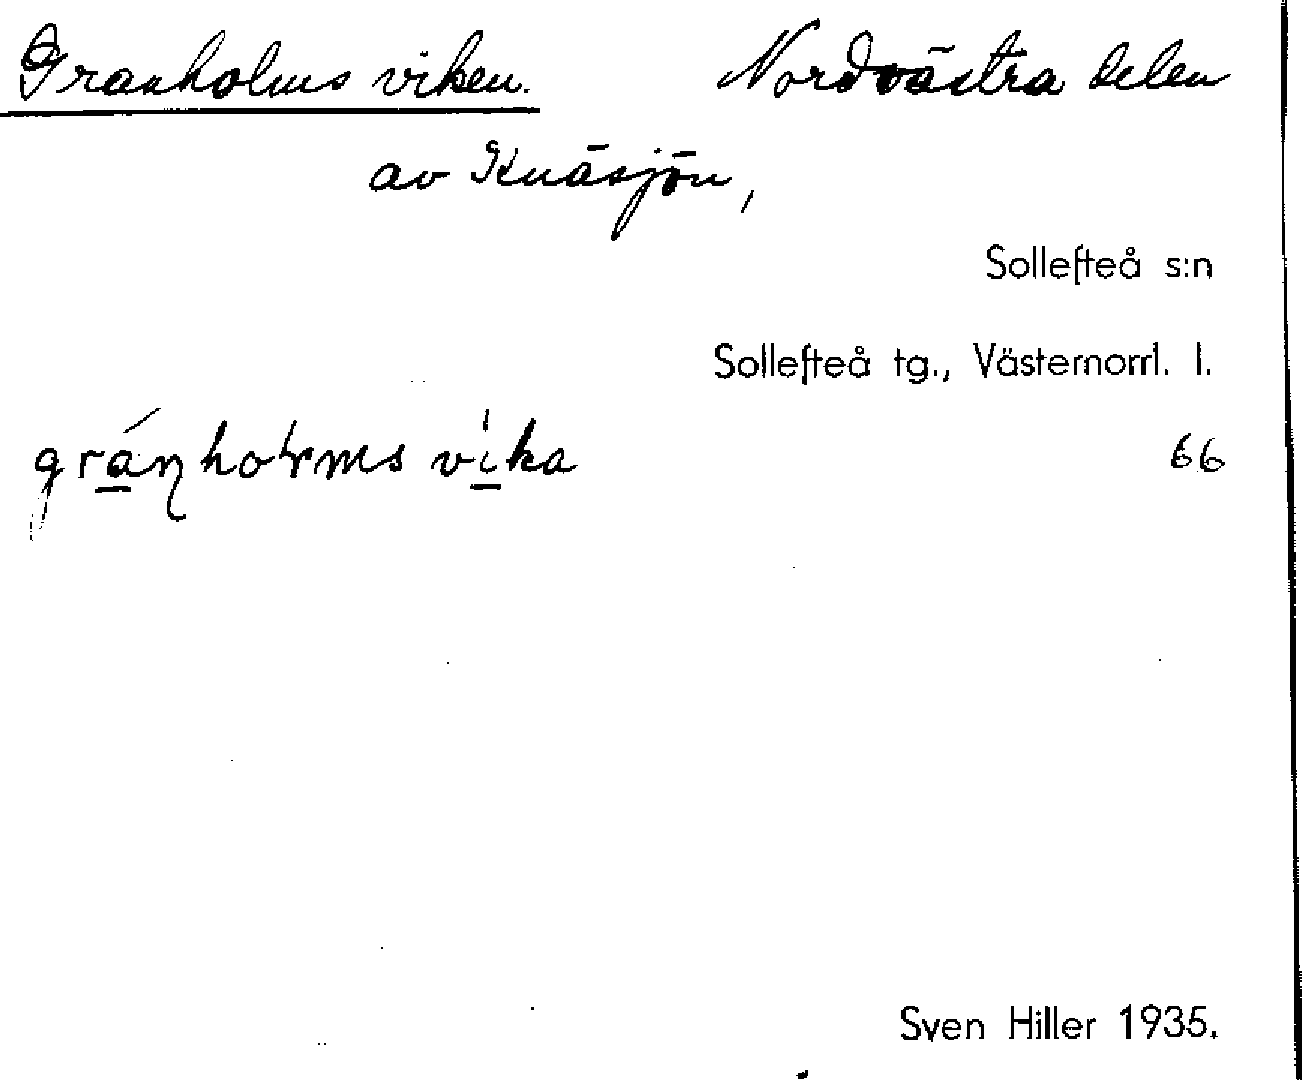 Granholms viken. Nordvästra delen
av Knäsjön,
Sollefteå s:n
Sollefteå tg., Västernorrl. l.
66
Sven Hiller 1935.